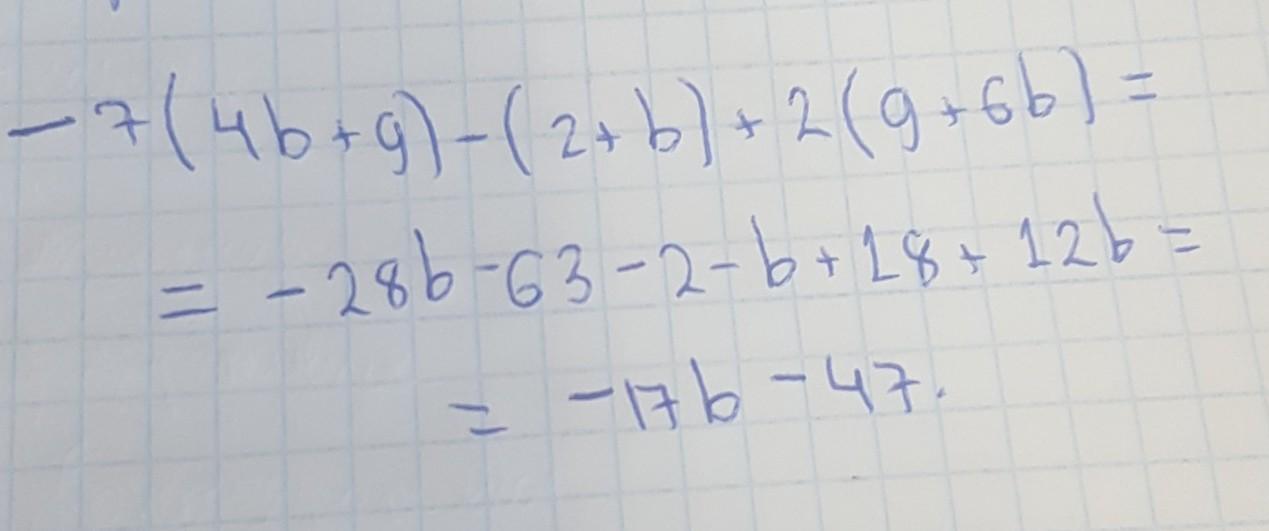 - 7(4b+9)-(2+b)+2(9+6b)=
= -28b-63-2-b+18+12b=
= -17b-47.